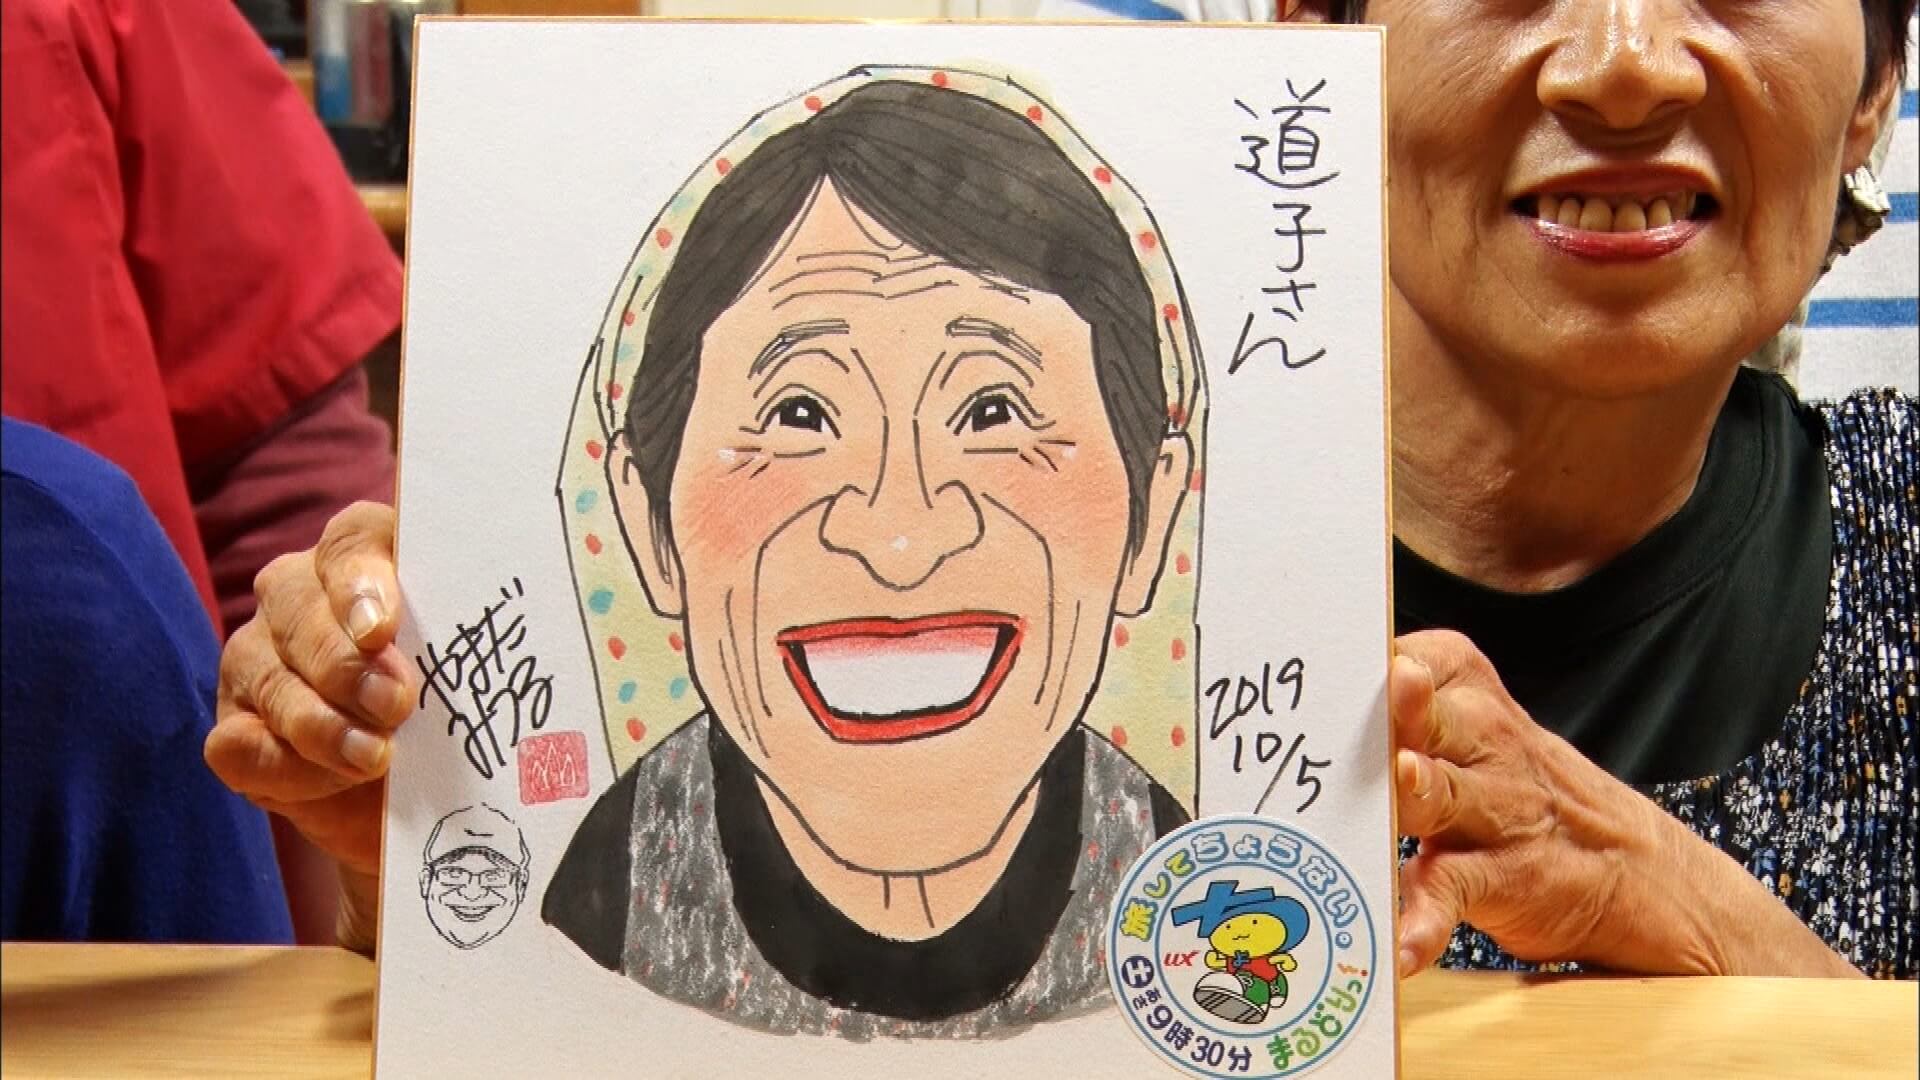 道子さん
やまだ
みつる
2019
10/5
旅してちょうない。
UX
土 あさ9時30分
まるどりっ!